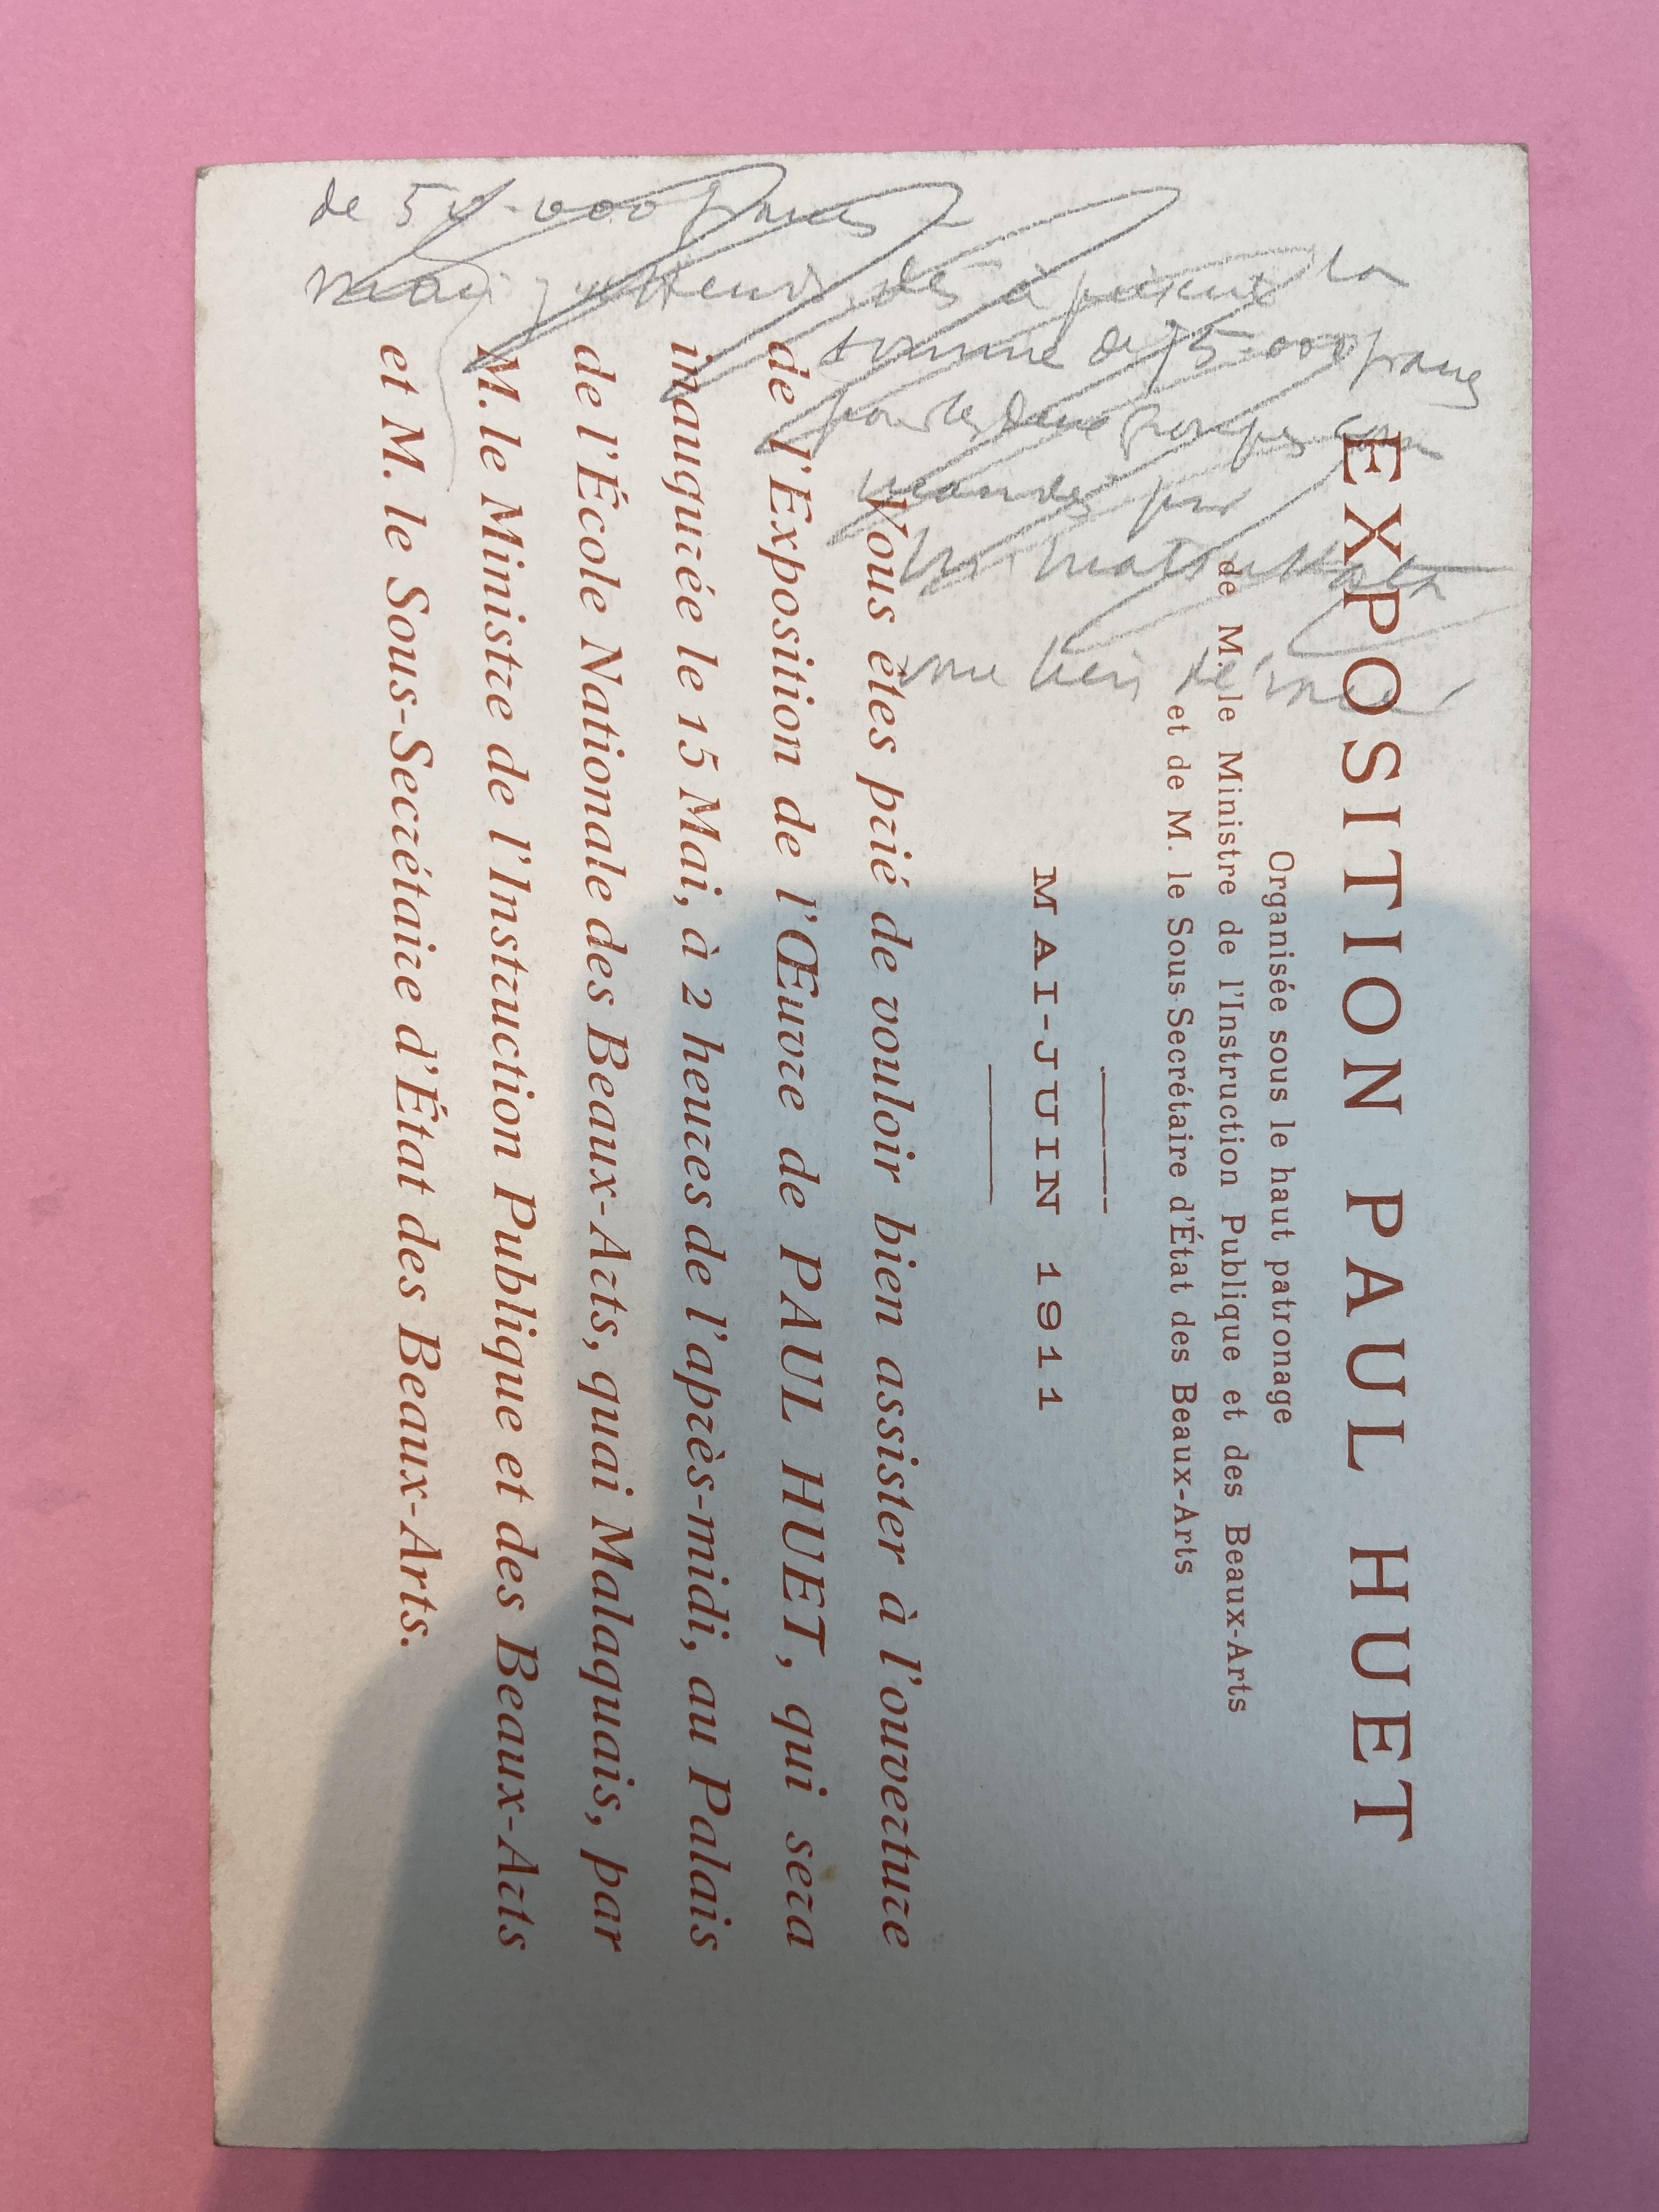 EXPOSITION PAUL HUET
Organisée sous le haut patronage
de M. le Ministre de l'Instruction Publique et des Beaux-Arts
et de M. le Sous-Secrétaire d'État des Beaux-Arts
MAI-JUIN 1911
Vous êtes prié de vouloir bien assister à l'ouverture
de l'Exposition de l'Œuvre de PAUL HUET, qui sera
inaugurée le 15 Mai, à 2 heures de l'après-midi, au Palais
de l'École Nationale des Beaux-Arts, quai Malaquais, par
M. le Ministre de l'Instruction Publique et des Beaux-Arts
et M. le Sous-Secrétaire d'État des Beaux-Arts.
de 50.000 francs
dès à présent la
somme de 75.000 francs
pour les deux groupes com
mandés par
votre bien dévoué